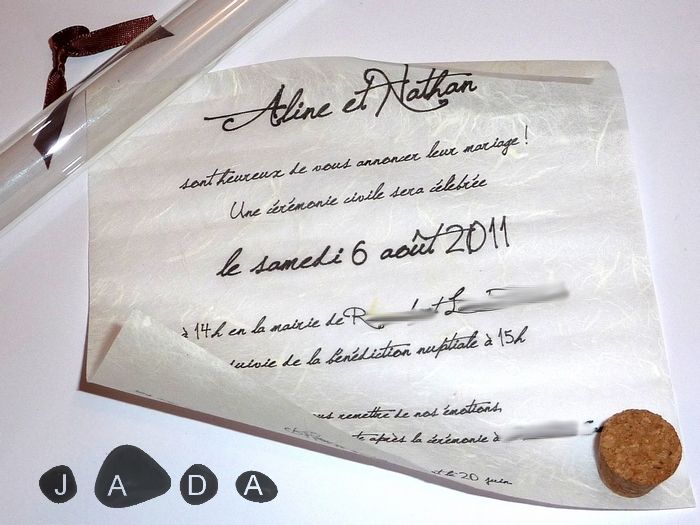 Aline et Nathan
sont heureux de vous annoncer leur mariage !
Une cérémonie civile sera célébrée
le samedi 6 août 2011
à 14h en la mairie de
suivie de la bénédiction nuptiale à 15h
remettre de nos émotions,
après la cérémonie à
le 20 juin
JADA